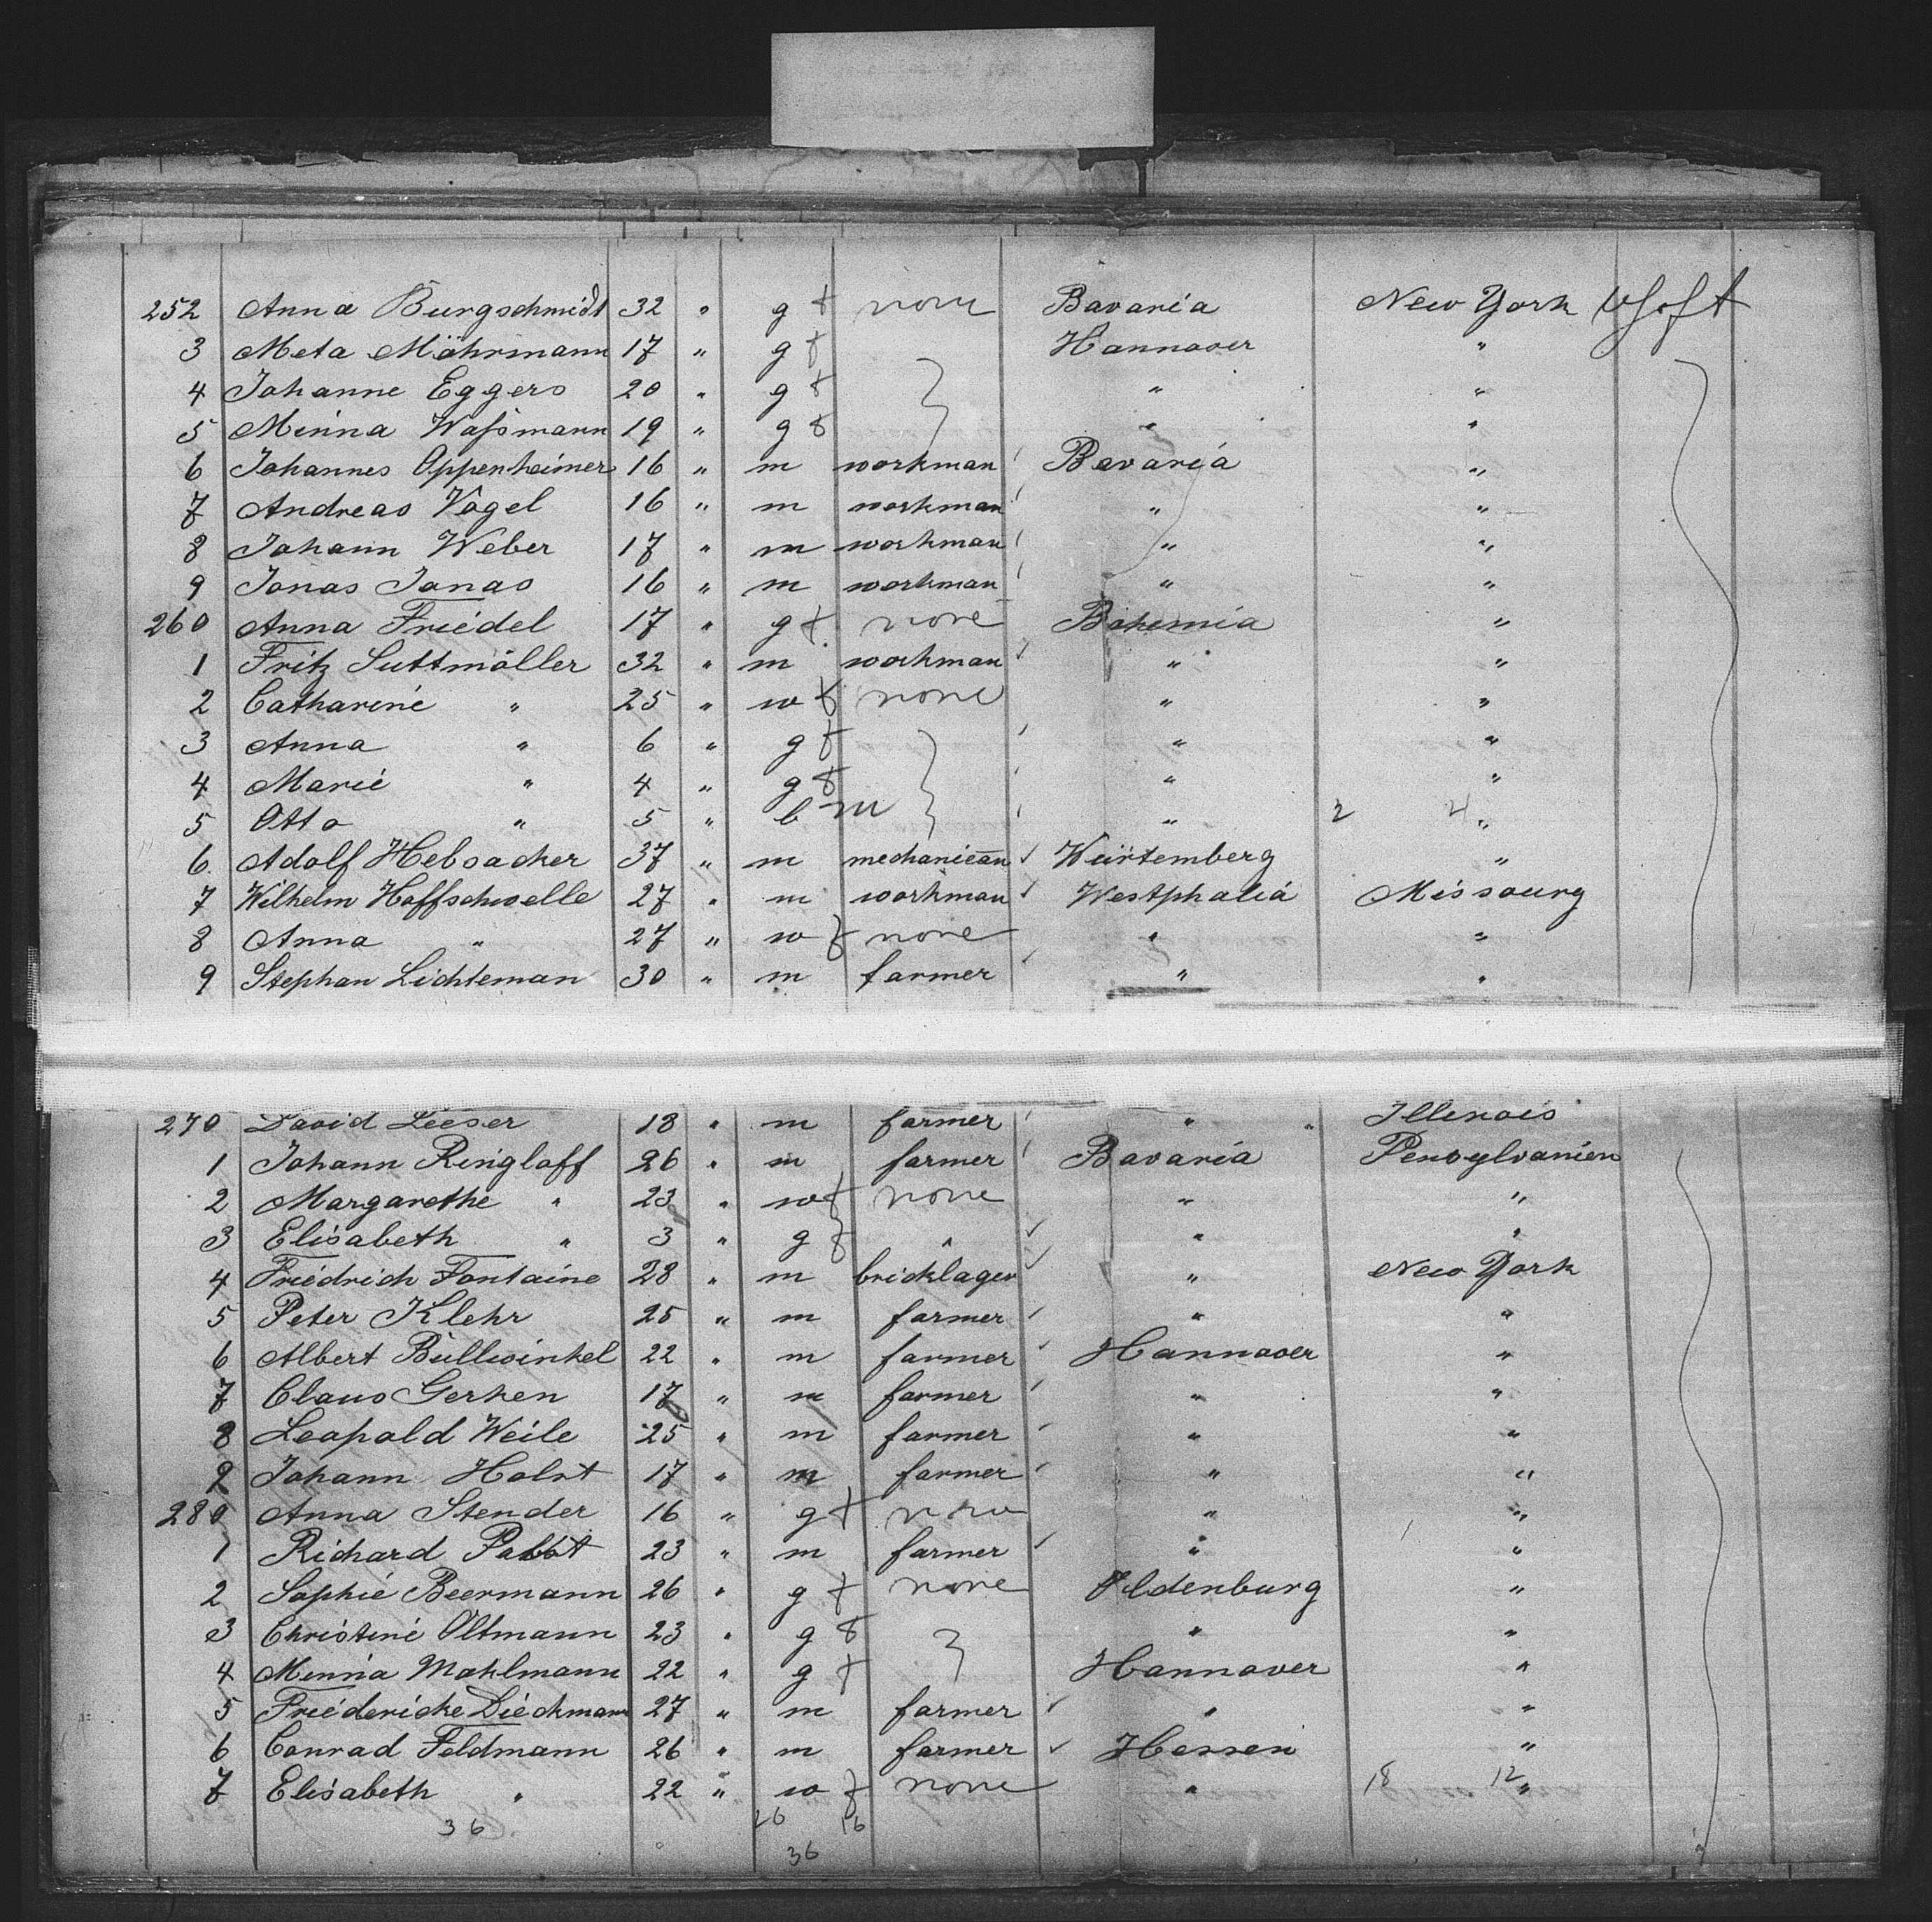 252 Anna Burgschmidt 32 " g f none Bavaria New York
3 Meta Möhrmann 17 " g f Hannover "
4 Johanne Eggers 20 " g f " "
5 Minna Waßmann 19 " g f " "
6 Johannes Oppenheimer 16 " m workman Bavaria "
7 Andreas Vogel 16 " m workman " "
8 Johann Weber 17 " m workman " "
9 Jonas Jonas 16 " m workman " "
260 Anna Friedel 17 " g f none Bohemia "
1 Fritz Suttmöller 32 " m workman " "
2 Catharine " 25 " w f none " "
3 Anna " 6 " g f " "
4 Marie " 4 " g f " "
5 Otto " 5 " b m " 2 4 "
6 Adolf Hebsacker 37 " m mechanican Würtemberg "
7 Wilhelm Hoffschwelle 27 " m workman Westphalia Missourg
8 Anna " 27 " w f none " "
9 Stephan Lichteman 30 " m farmer " "
270 David Leeser 18 " m farmer " " Illinois
1 Johann Ringloff 26 " m farmer Bavaria Pensylvanien
2 Margarethe " 23 " w f none " "
3 Elisabeth " 3 " g f " " "
4 Friedrich Fontaine 28 " m bricklager " New York
5 Peter Klehr 25 " m farmer " "
6 Albert Büllwinkel 22 " m farmer Hannover "
7 Claus Gerken 17 " m farmer " "
8 Leopold Weile 25 " m farmer " "
9 Johann Holst 17 " m farmer " "
280 Anna Stender 16 " g f none " "
1 Richard Pabst 23 " m farmer " "
2 Sophie Beermann 26 " g f none Oldenburg "
3 Christine Oltmann 23 " g f " "
4 Minna Mahlmann 22 " g f Hannover "
5 Friedericke Dieckmann 27 " m farmer " "
6 Conrad Feldmann 26 " m farmer Hessen "
7 Elisabeth " 22 " w f none " 18 12 "
36 16
36